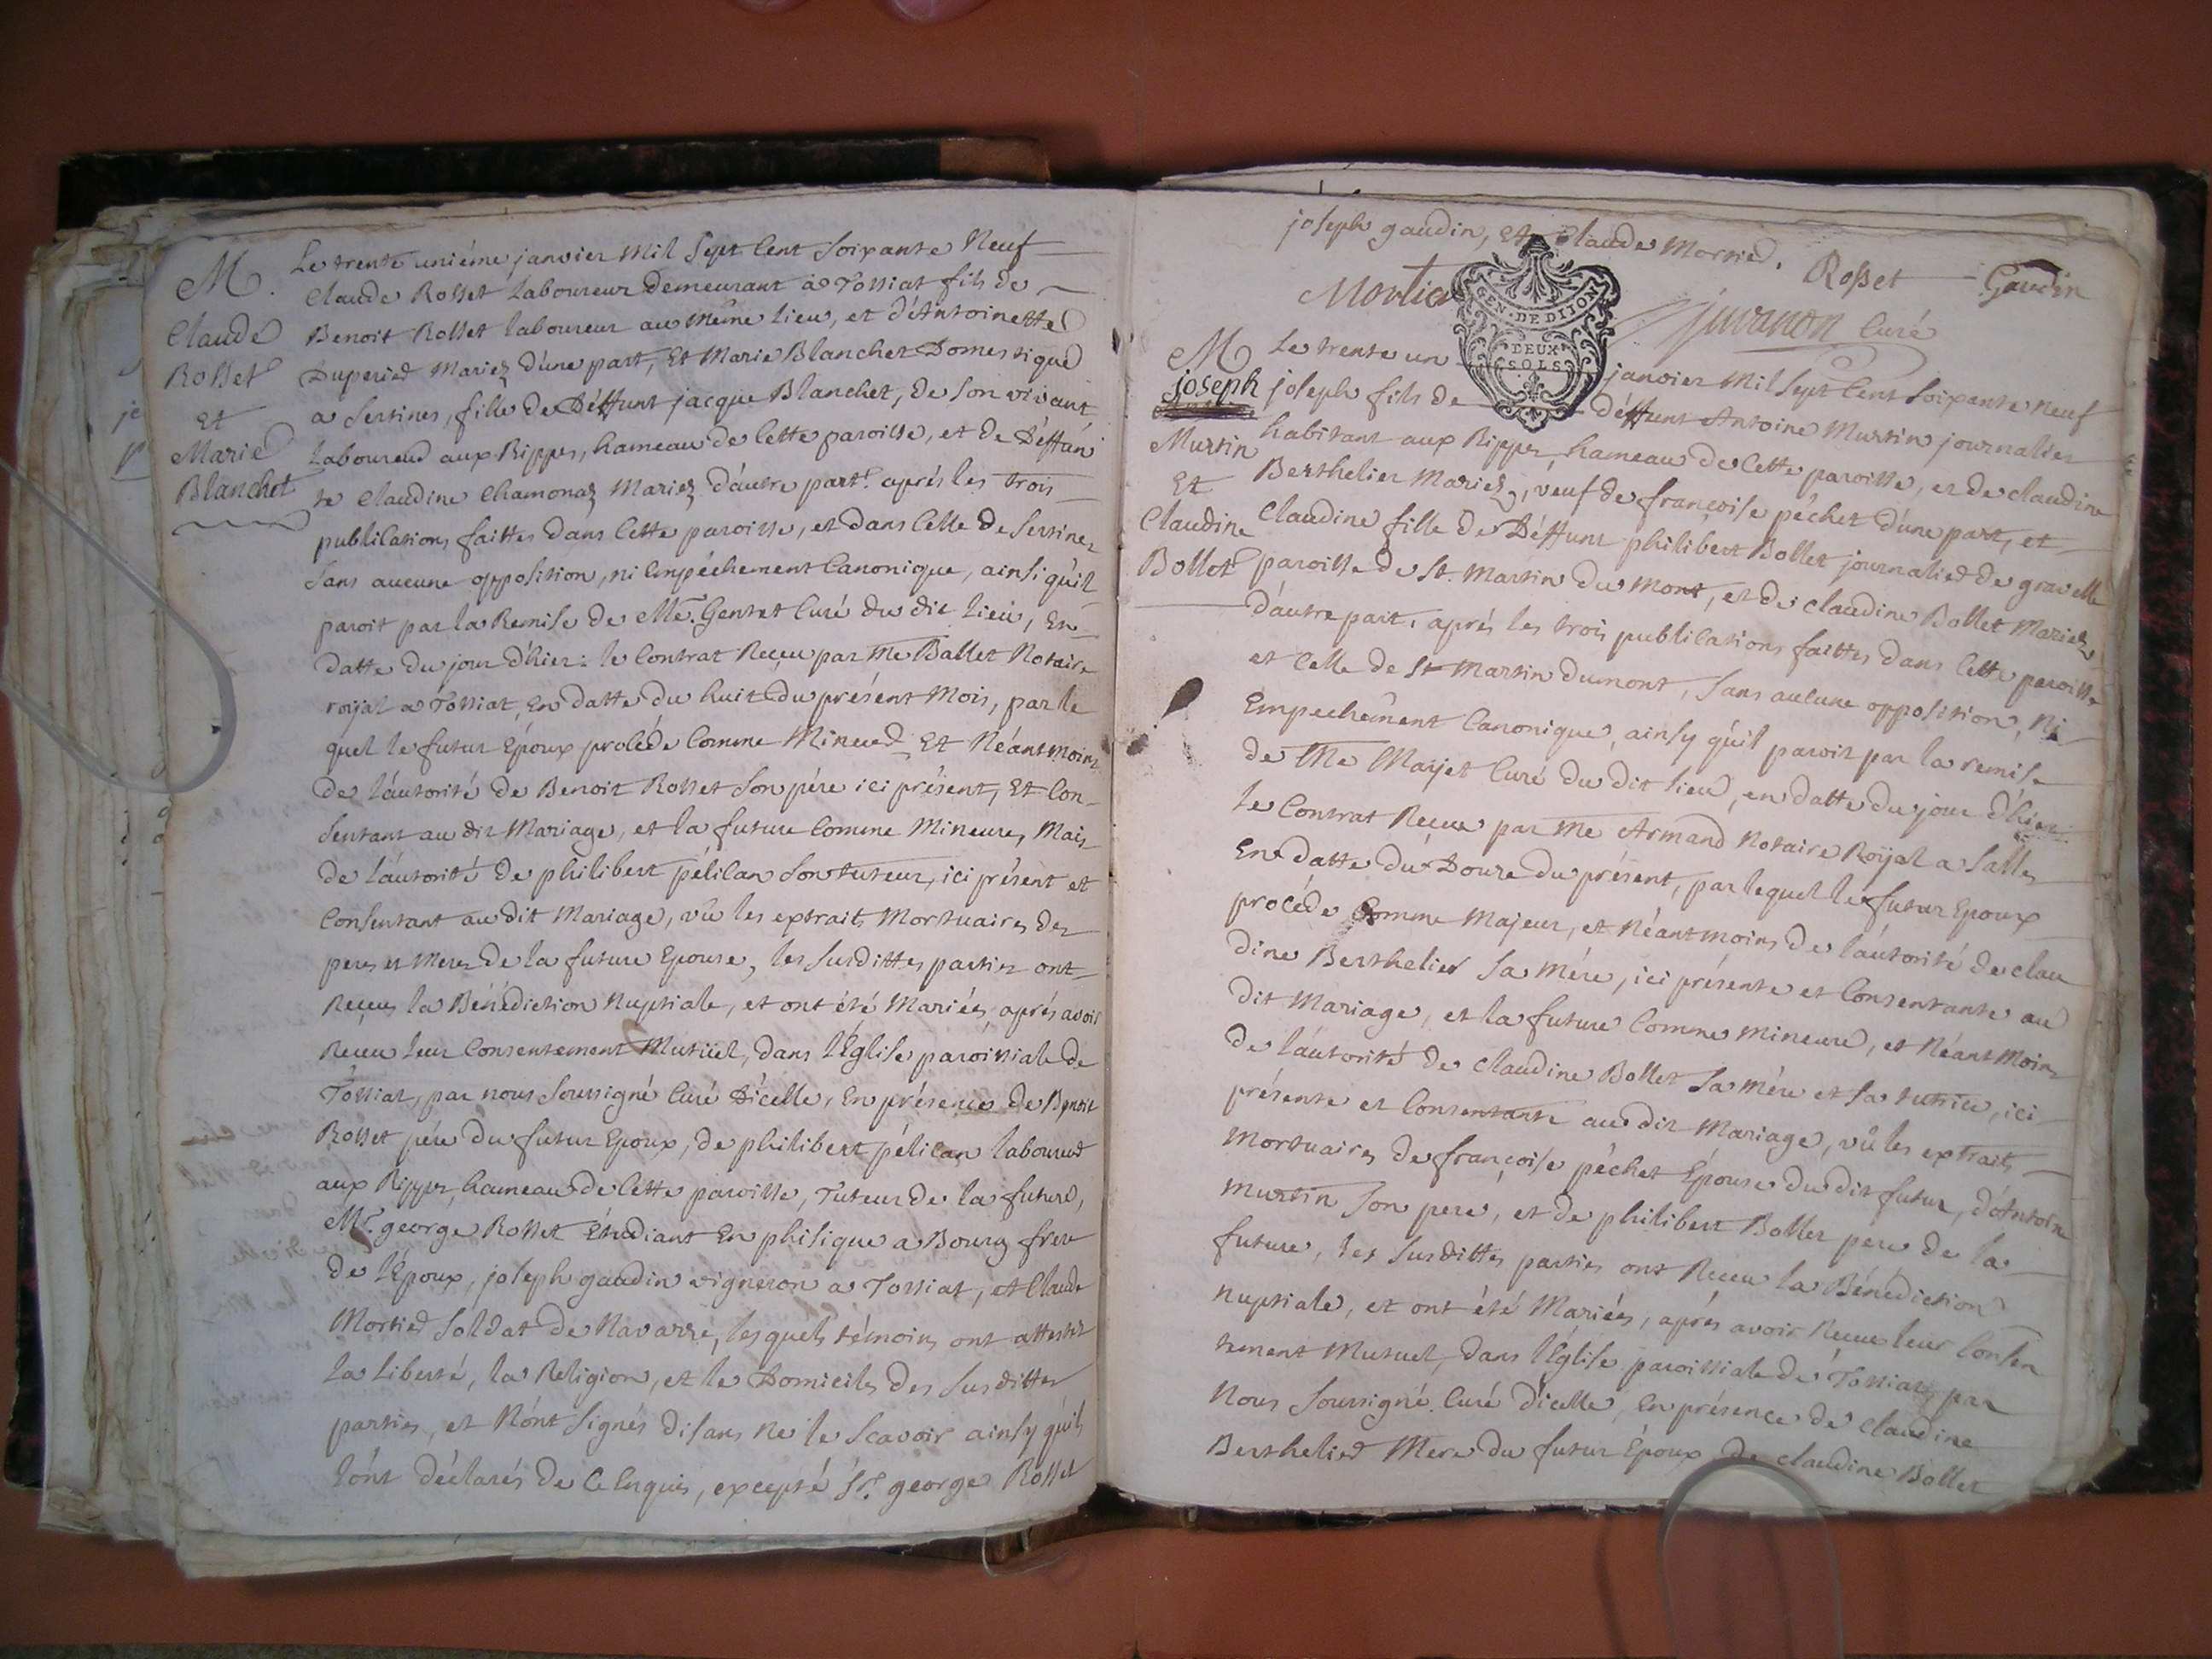 M.
Claude
Rosset
Et
Marie
Blanchet
Le trente unième janvier Mil Sept Cent Soixante Neuf
Claude Rosset Laboureur Demeurant à Tossiat fils de
Benoit Rosset laboureur au Même lieu, et d'Antoinette
Duperied Mariez d'une part, Et Marie Blanchet Domestique
a Sertines, fille de Déffunt jacque Blanchet, de Son vivant
Laboureur aux Rippes, hameau de Cette paroisse, et de Déffun
te Claudine Chamonaz Mariez d'autre part. aprés les trois
publications faittes dans Cette paroisse, et dans Celle de Sertines
Sans aucune opposition, ni Empéchement Canonique, ainsi qu'il
paroit par la Remise de Me. Gentet Curé du dit lieu, En
datte du jour d'hier: le Contrat Reçeu par Me Ballet Notaire
roijal a Tossiat, En datte du huit du présent Mois, par le
quel le futur Époux procéde Comme Mineur, Et Néantmoins
de l'áutorité de Benoit Rosset Son pére ici présent, Et Con-
sentant au dit Mariage, et la future Comme Mineure, Mais
de l'áutorité de philibert pélican Son tuteur, ici présent et
Consentant au dit Mariage, vû les extraits Mortuaires des
peres et Meres de la future Epouse, les Susdittes parties ont
Reçeus la Bénédiction Nuptiale, et ont été Mariées, aprés avoir
Reçeu leur Consentement Mutüel, dans l'Église paroissiale de
Tossiat, par nous Soussigné Curé D'icelle, En présence de Benoit
Rosset pére du futur Epoux, de philibert pélican laboureur
aux Rippes, hameau de Cette paroisse, Tuteur de la future,
Mr. george Rosset Étudiant En phisique a Bourg frere
de l'Époux, joseph gaudin vigneron a Tossiat, et Claude
Mortied Soldat de Navarre, lesquels témoins ont attestez
la liberté, la Religion, et le Domicile des Susdittes
parties, et N'ónt Signés disans Ne le Scavoir ainsy qu'ils
l'ónt déclarés de Ce Enquis, excepté Sr. george Rosset
joseph gaudin, Et Claude Mortied.
Mortier
Rosset
Gaudin
juvanon Curé
GEN. DE DIJON
DEUX
SOLS
M
joseph
Murtin
Et
Claudine
Bollet
Le trente un janvier Mil Sept Cent Soixante Neuf
joseph fils de déffunt Antoine Murtin journalier
habitant aux Rippes, hameau de Cette paroisse, et de claudine
Berthelier Mariez, veuf de françoise péchet d'une part, et
Claudine fille de Déffunt philibert Bollet journalied de gravelle
paroisse de St. Martin du Mont, et de Claudine Bollet Mariez
d'áutre part, aprés les trois publications faittes dans Cette paroisse
et Celle de St Martin dumont, Sans aucune opposition, Ni
Empechement Canonique, ainsy qu'il paroit par la remise
de Me Marjet Curé du dit lieu, en datte du jour d'hier
le Contrat Reçeu par Me Armand Notaire Roïjal a Salles
En datte du Douze du présent, par lequel le futur Epoux
procéde Comme Majeur, et Néantmoins de l'áutorité de clau
dine Berthelier Sa Mére, ici présente et Consentante au
dit Mariage, et la future Comme Mineure, et Néantmoins
de l'áutorité de Claudine Bollet Sa Mére et Sa tutrice, ici
présente et Consentante au dit Mariage, vû les extraits
Mortuaires de françoise péchet Épouse du dit futur, d'Antoine
Murtin Son pere, et de philibert Bollet pere de la
future, les Susdittes parties ont Reçeu la Bénédiction
Nuptiale, et ont été Mariées, aprés avoir Reçeu leur Consen
tement Mutuel, dans l'Église paroissiale de Tossiat, par
Nous Soussigné Curé d'icelle, En présence de Claudine
Berthelied Mere du futur Époux, de claudine Bollet